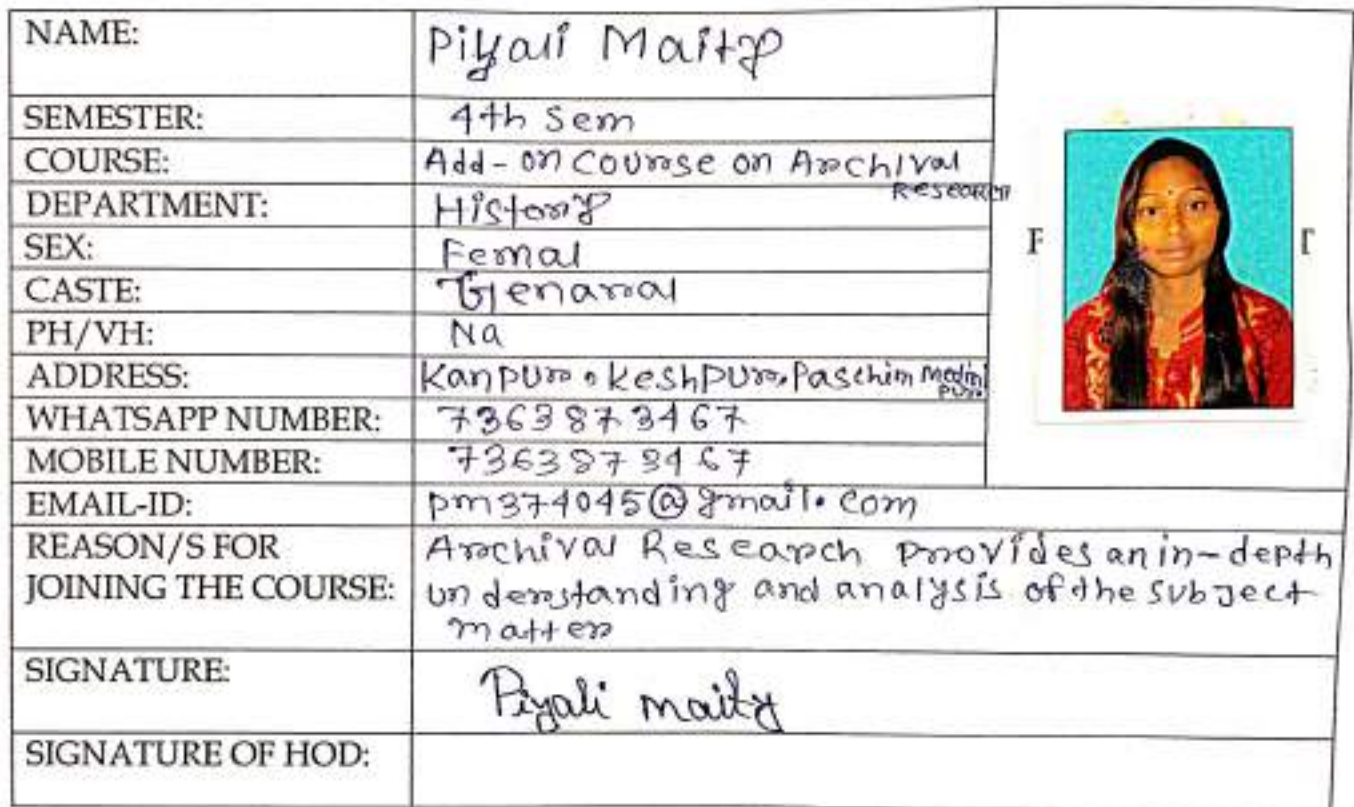 NAME: Piyali Maity
SEMESTER: 4th Sem
COURSE: Add-on Course on Archival Research
DEPARTMENT: History
SEX: Femal
CASTE: Genaral
PH/VH: Na
ADDRESS: Kanpur, Keshpur, Paschim Medinipur
WHATSAPP NUMBER: 7363873467
MOBILE NUMBER: 7363873467
EMAIL-ID: pm374045@gmail.com
REASON/S FOR Archival Research provides an in-depth
JOINING THE COURSE: understanding and analysis of the subject
matter
SIGNATURE: Piyali maity
SIGNATURE OF HOD: